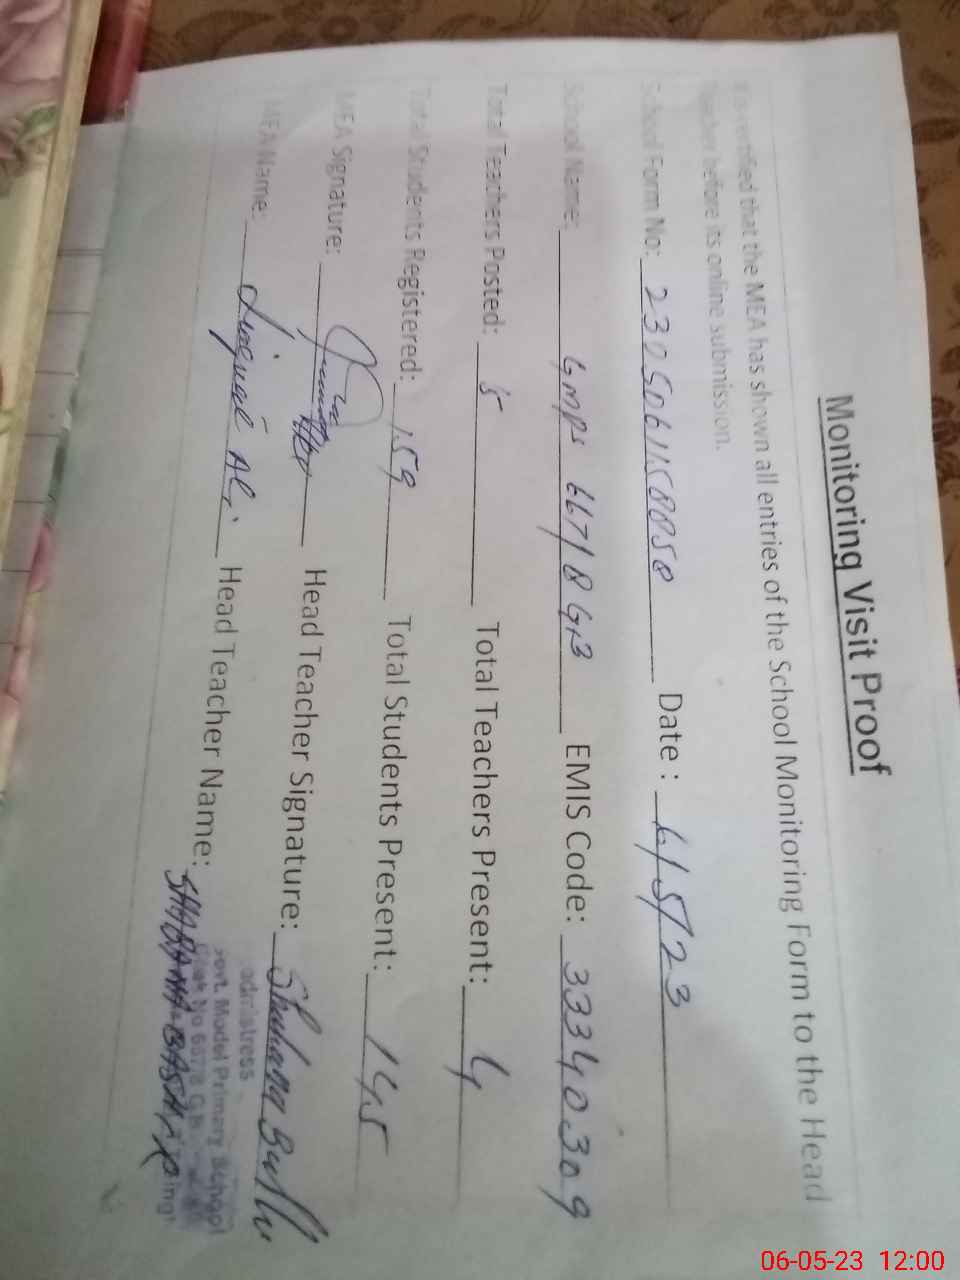 Monitoring Visit Proof
It is certified that the MEA has shown all entries of the School Monitoring Form to the Head
Teacher before its online submission.
School Form No: 2305061158858 Date : 6/5/23
School Name: GMPS 667/8 GB EMIS Code: 33340309
Total Teachers Posted: 5 Total Teachers Present: 4
Total Students Registered: 159 Total Students Present: 145
MEA Signature: Head Teacher Signature:
MEA Name: Liaqat Ali Head Teacher Name: SHABANA BASHIR
Govt. Model Primary School
06-05-23 12:00